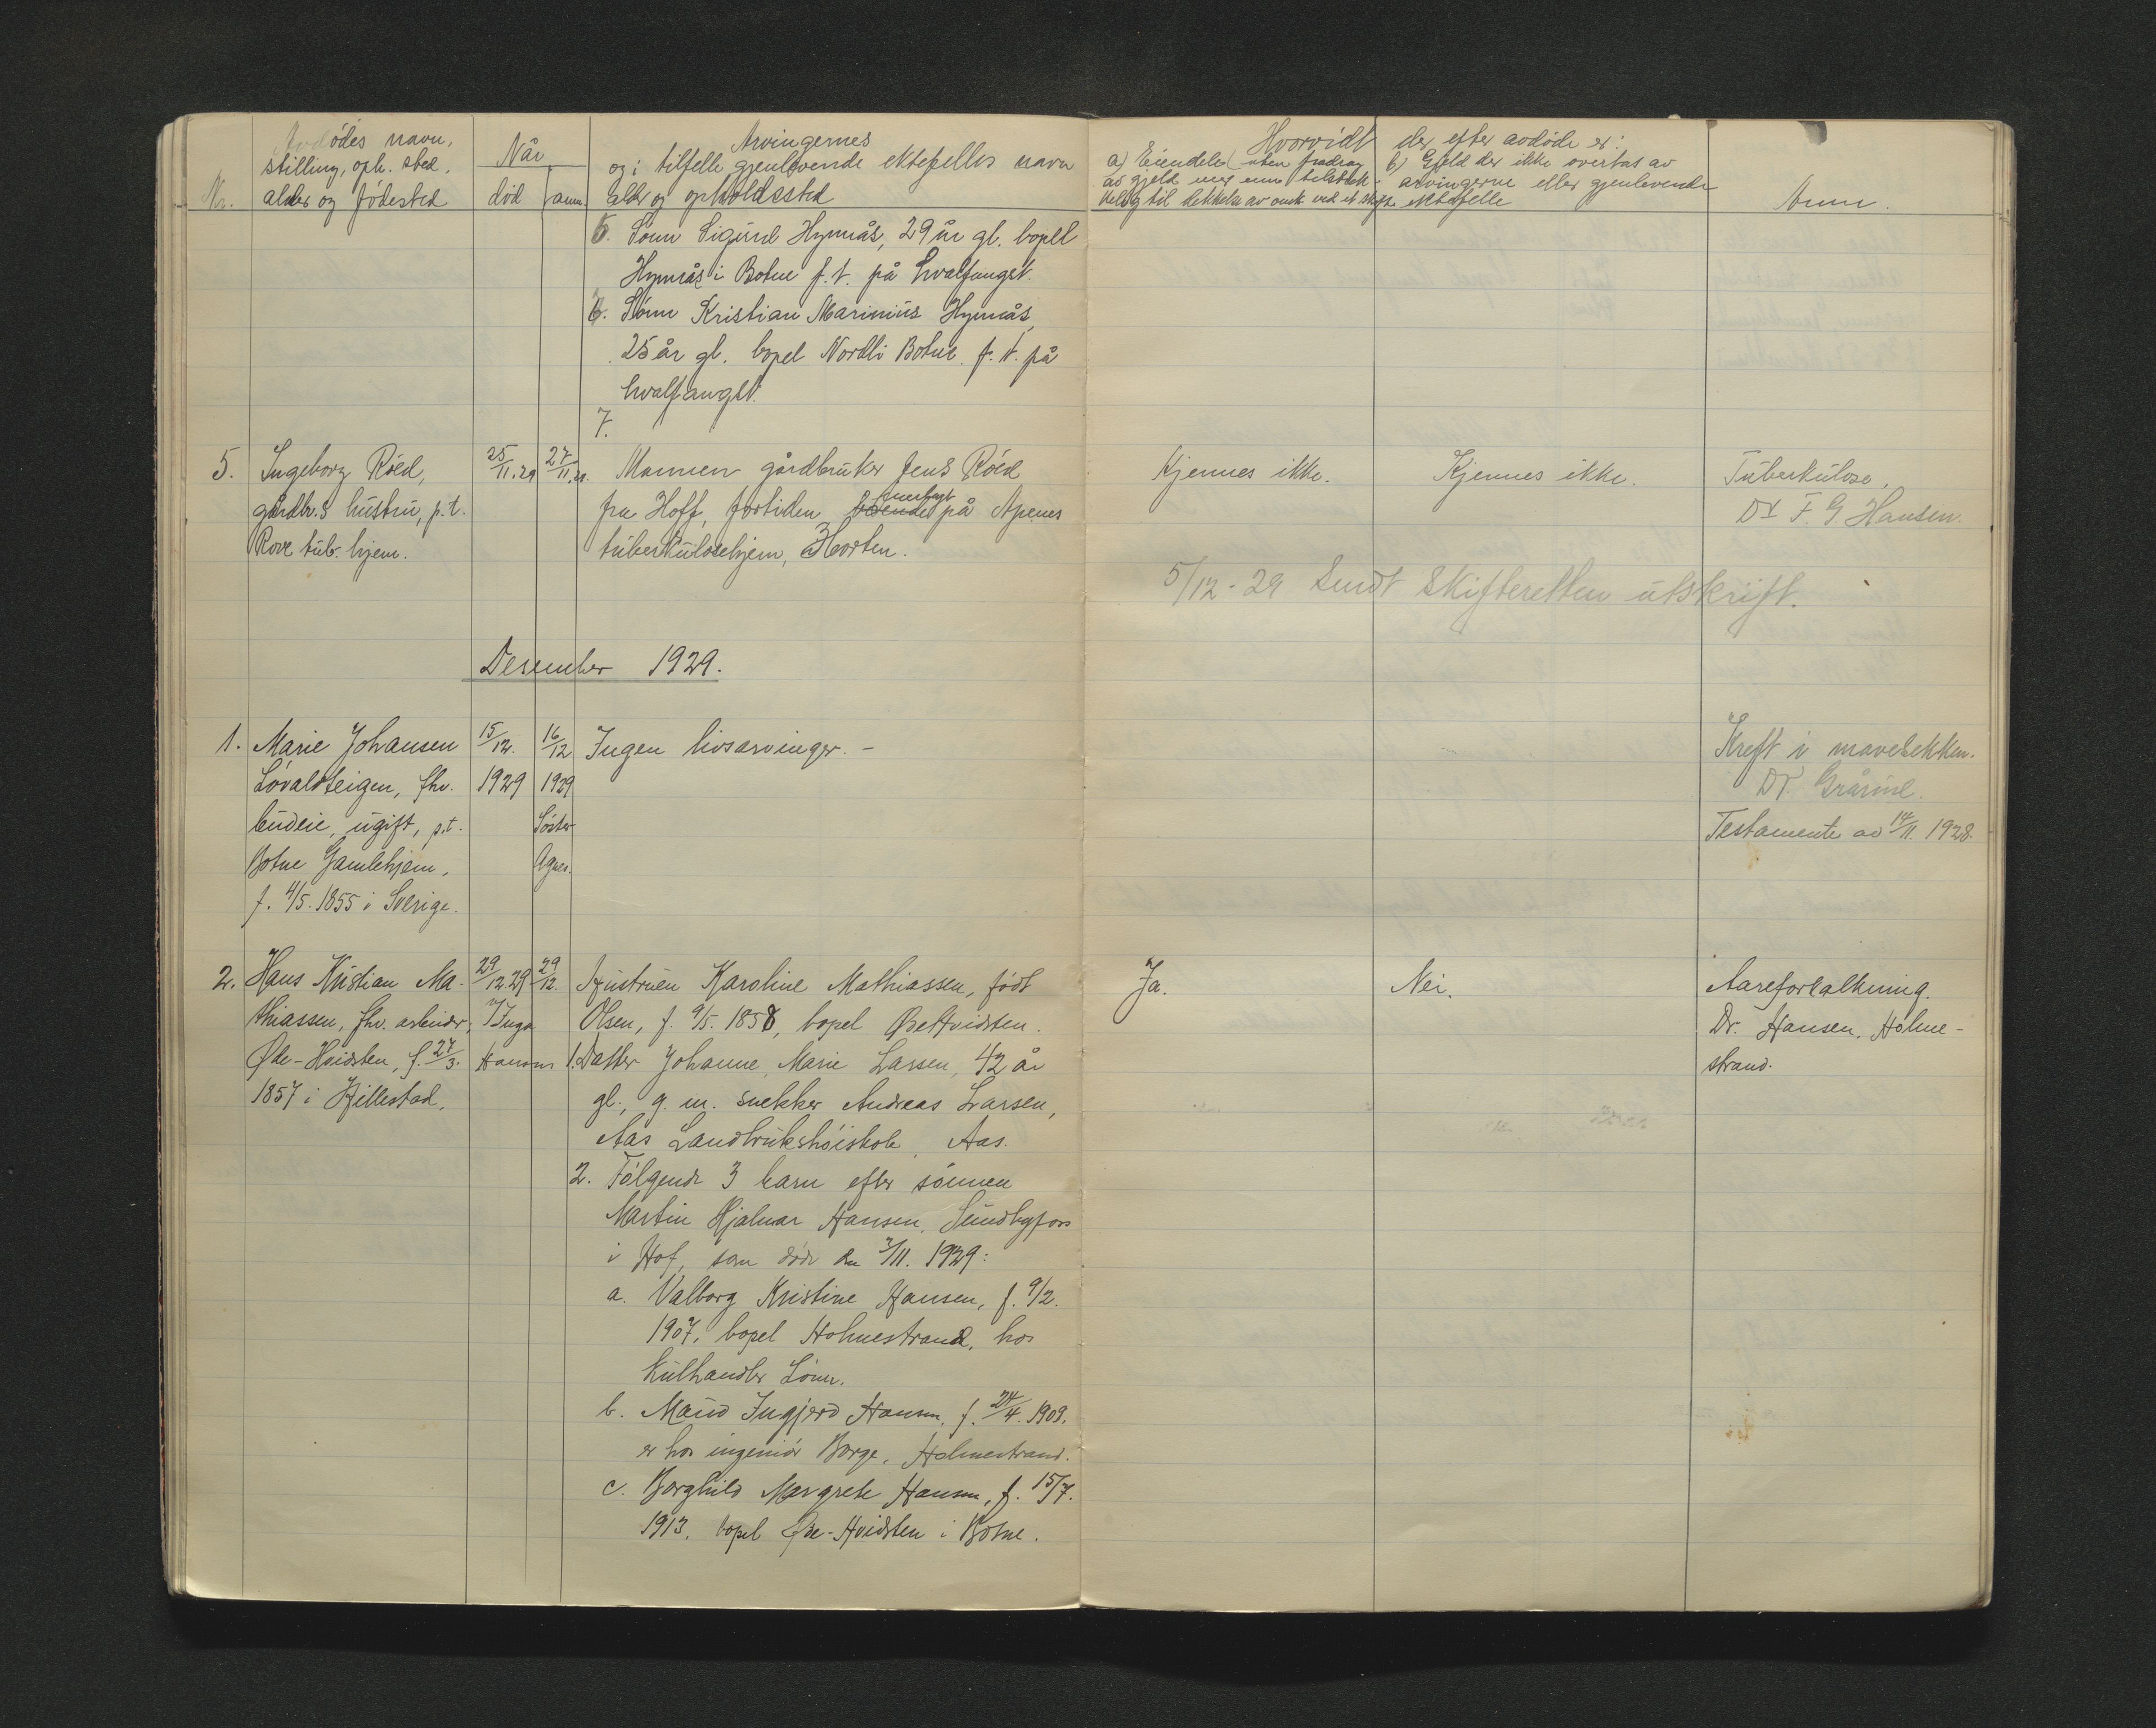 Avdødes navn,
stilling, oph. sted,
Nr. alder og fødested
Når
død anm.
Arvingernes
og i tilfelle gjenlevende ektefelles navn
alder og opholdssted
Hvorvidt der efter avdøde er:
a) Eiendele (uten fradrag
av gjeld
b) Gjeld der ikke overtas av
arvingerne eller gjenlevende
ektefelle
Anm.
5. Sønn Sigurd Hynnås, 29 år gl. bopel
Hynnås i Botne f. t. på hvalfangst.
6. Sønn Kristian Marinius Hynnås,
25 år gl. bopel Nordli Botne f. t. på
hvalfangst.
7.
5. Ingeborg Røed,
gårdbr.s hustru, p.t.
Rove tub. hjem.
25/11.29 27/11.29
Mannen gårdbruker Jens Røed
fra Hoff, fortiden boende innlagt på Apenes
tuberkulosehjem, Horten.
Kjennes ikke. Kjennes ikke.
Tuberkulose.
Dr F. G. Hansen.
5/12-29 Sendt Skifteretten utskrift.
Desember 1929.
1. Marie Johansen
Løvaldteigen, fhv.
budeie, ugift, p.t.
Botne Gamlehjem,
f. 4/5.1855 i Sverige.
15/12. 1929
16/12 1929
Søster
Agnes.
Ingen livsarvinger. -
Kreft i mavesekken.
Dr. Gråsrud.
Testamente av 14/11. 1928.
2. Hans Kristian Ma-
thiassen, fhv. arbeider,
Øde-Hvidsten, f. 27/3.
1857 i Hillestad.
29/12.29 29/12.
v/ Inga
Hansen
Hustruen Karoline Mathiassen, født
Olsen, f. 9/5. 1858, bopel Ødehvidsten.
1. Datter Johanne Marie Larsen, 42 år
gl., g. m. snekker Andreas Larsen,
Aas Landbrukshøiskole, Aas.
2. Følgende 3 barn efter sønnen
Martin Hjalmar Hansen, Sundbyfoss
i Hof, som døde den 3/11. 1929:
a. Valborg Kristine Hansen, f. 9/2.
1907, bopel Holmestrand, hos
kulhandler Lønn.
b. Maud Ingjerd Hansen, f. 24/4. 1909,
er hos ingeniør Borge, Holmestrand.
c. Borghild Margrete Hansen, f. 15/7.
1913, bopel Øde-Hvidsten i Botne.
Ja. Nei.
Aareforkalkning.
Dr. Hansen, Holme-
strand.